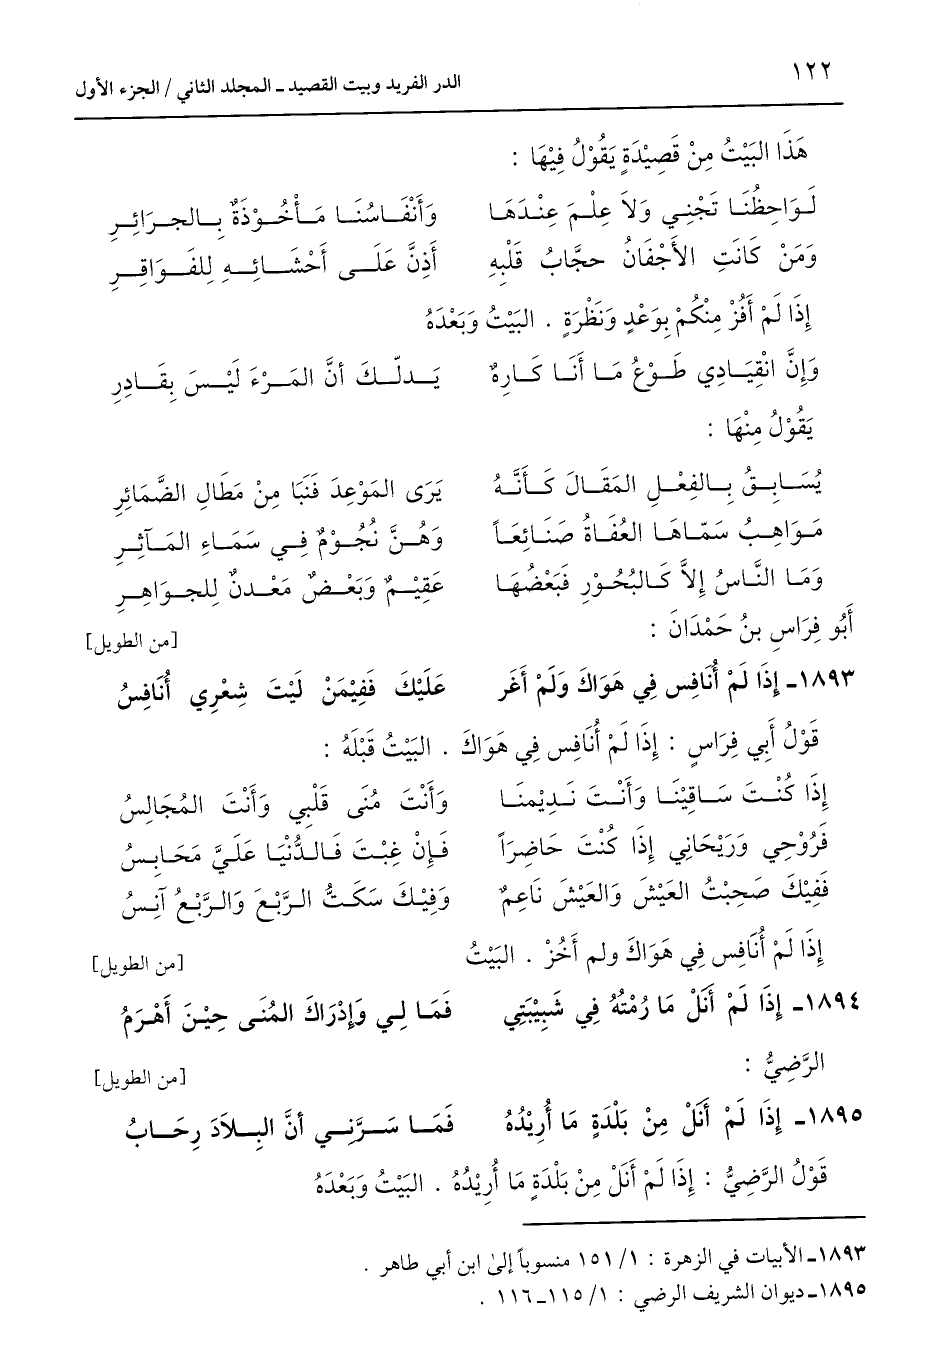 ١٢٢
الدر الفريد وبيت القصيد ـ المجلد الثاني / الجزء الأول
هَذَا البَيْتُ مِنْ قَصِيْدَةٍ يَقُوْلُ فِيْهَا :
لَوَاحِظُنَا تَجْنِي وَلاَ عِلْمَ عِنْدَهَا وَأَنْفَاسُنَا مَأْخُوْذَةٌ بِالجرَائِرِ
وَمَنْ كَانَتِ الأَجْفَانُ حجَّابُ قَلْبِهِ أَذِنَّ عَلَى أَحْشَائِهِ لِلفَوَاقِرِ
إِذَا لَمْ أَفُزْ مِنْكُمْ بِوَعْدٍ وَنَظْرَةٍ . البَيْتُ وَبَعْدَهُ
وَإِنَّ انْقِيَادِي طَوْعُ مَا أَنَا كَارِهٌ يَدلّكَ أنَّ المَرْءَ لَيْسَ بِقَادِرِ
يَقُوْلُ مِنْهَا :
يُسَابِقُ بِالفِعْلِ المَقَالَ كَأَنَّهُ يَرَى المَوْعِدَ فَنَبَا مِنْ مَطَالِ الضَّمَائِرِ
مَوَاهِبُ سَمّاهَا العُفَاةُ صَنَائِعَاً وَهُنَّ نُجُوْمٌ فِي سَمَاءِ المَآثِرِ
وَمَا النَّاسُ إِلاَّ كَالبُحُوْرِ فَبَعْضُهَا عَقِيْمٌ وَبَعْضٌ مَعْدنٌ لِلجوَاهِرِ
أَبُو فِرَاسِ بنُ حَمْدَانَ : [من الطويل]
١٨٩٣ـ إِذَا لَمْ أُنَافِس فِي هَوَاكَ وَلَمْ أَغَر عَلَيْكَ فَفِيْمَنْ لَيْتَ شِعْرِي أُنَافِسُ
قَوْلُ أَبِي فِرَاسٍ : إِذَا لَمْ أُنَافِس فِي هَوَاكَ . البَيْتُ قَبْلَهُ :
إِذَا كُنْتَ سَاقِيْنَا وَأَنْتَ نَدِيْمنَا وَأَنْتَ مُنَى قَلْبِي وَأَنْتَ المُجَالِسُ
فَرُوْحِي وَرَيْحَانِي إِذَا كُنْتَ حَاضِرَاً فَإِنْ غِبْتَ فَالدُّنْيَا عَلَيَّ مَحَابِسُ
فَفِيْكَ صَحِبْتُ العَيْشَ وَالعَيْشَ نَاعِمٌ وَفِيْكَ سَكَتُّ الرَّبْعَ وَالرَّبْعُ آنِسُ
إِذَا لَمْ أُنَافِس فِي هَوَاكَ ولم أَخُزْ . البَيْتُ [من الطويل]
١٨٩٤ـ إِذَا لَمْ أَنَلْ مَا رُمْتُهُ فِي شَبِيْبَتِي فَمَا لِي وَإِدْرَاكَ المُنَى حِيْنَ أَهْرَمُ
الرَّضِيُّ : [من الطويل]
١٨٩٥ـ إِذَا لَمْ أَنَلْ مِنْ بَلْدَةٍ مَا أُرِيْدُهُ فَمَا سَرَّنِي أنَّ البِلاَدَ رِحَابُ
قَوْلُ الرَّضِيُّ : إِذَا لَمْ أَنَلْ مِنْ بَلْدَةِ مَا أُرِيْدُهُ . البَيْتُ وَبَعْدَهُ
١٨٩٣ـ الأبيات في الزهرة : ١/ ١٥١ منسوباً إلىٰ ابن أبي طاهر .
١٨٩٥ـ ديوان الشريف الرضي : ١/ ١١٥ـ١١٦ .